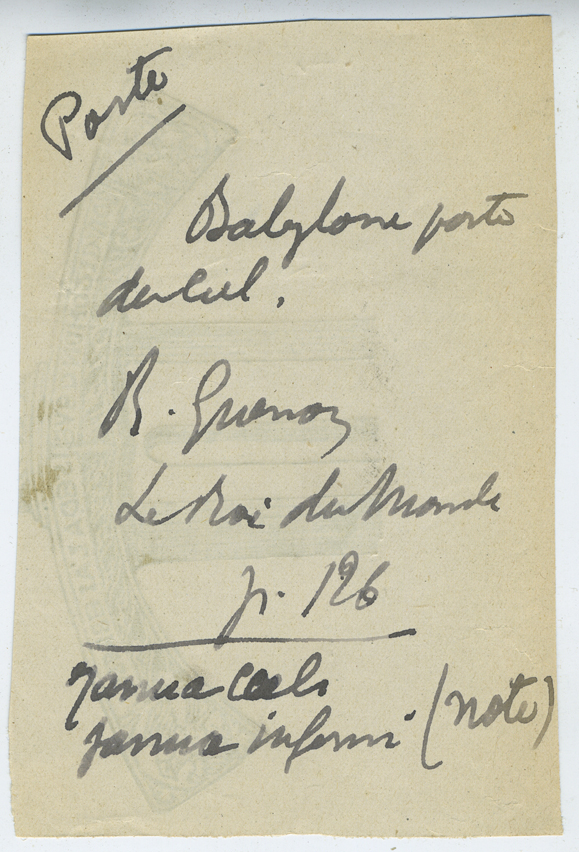 Porte
Babylone porte
du Ciel.
R. Guenon
Le Roi du Monde
p. 126
Janua Coeli
Janua inferni (note)